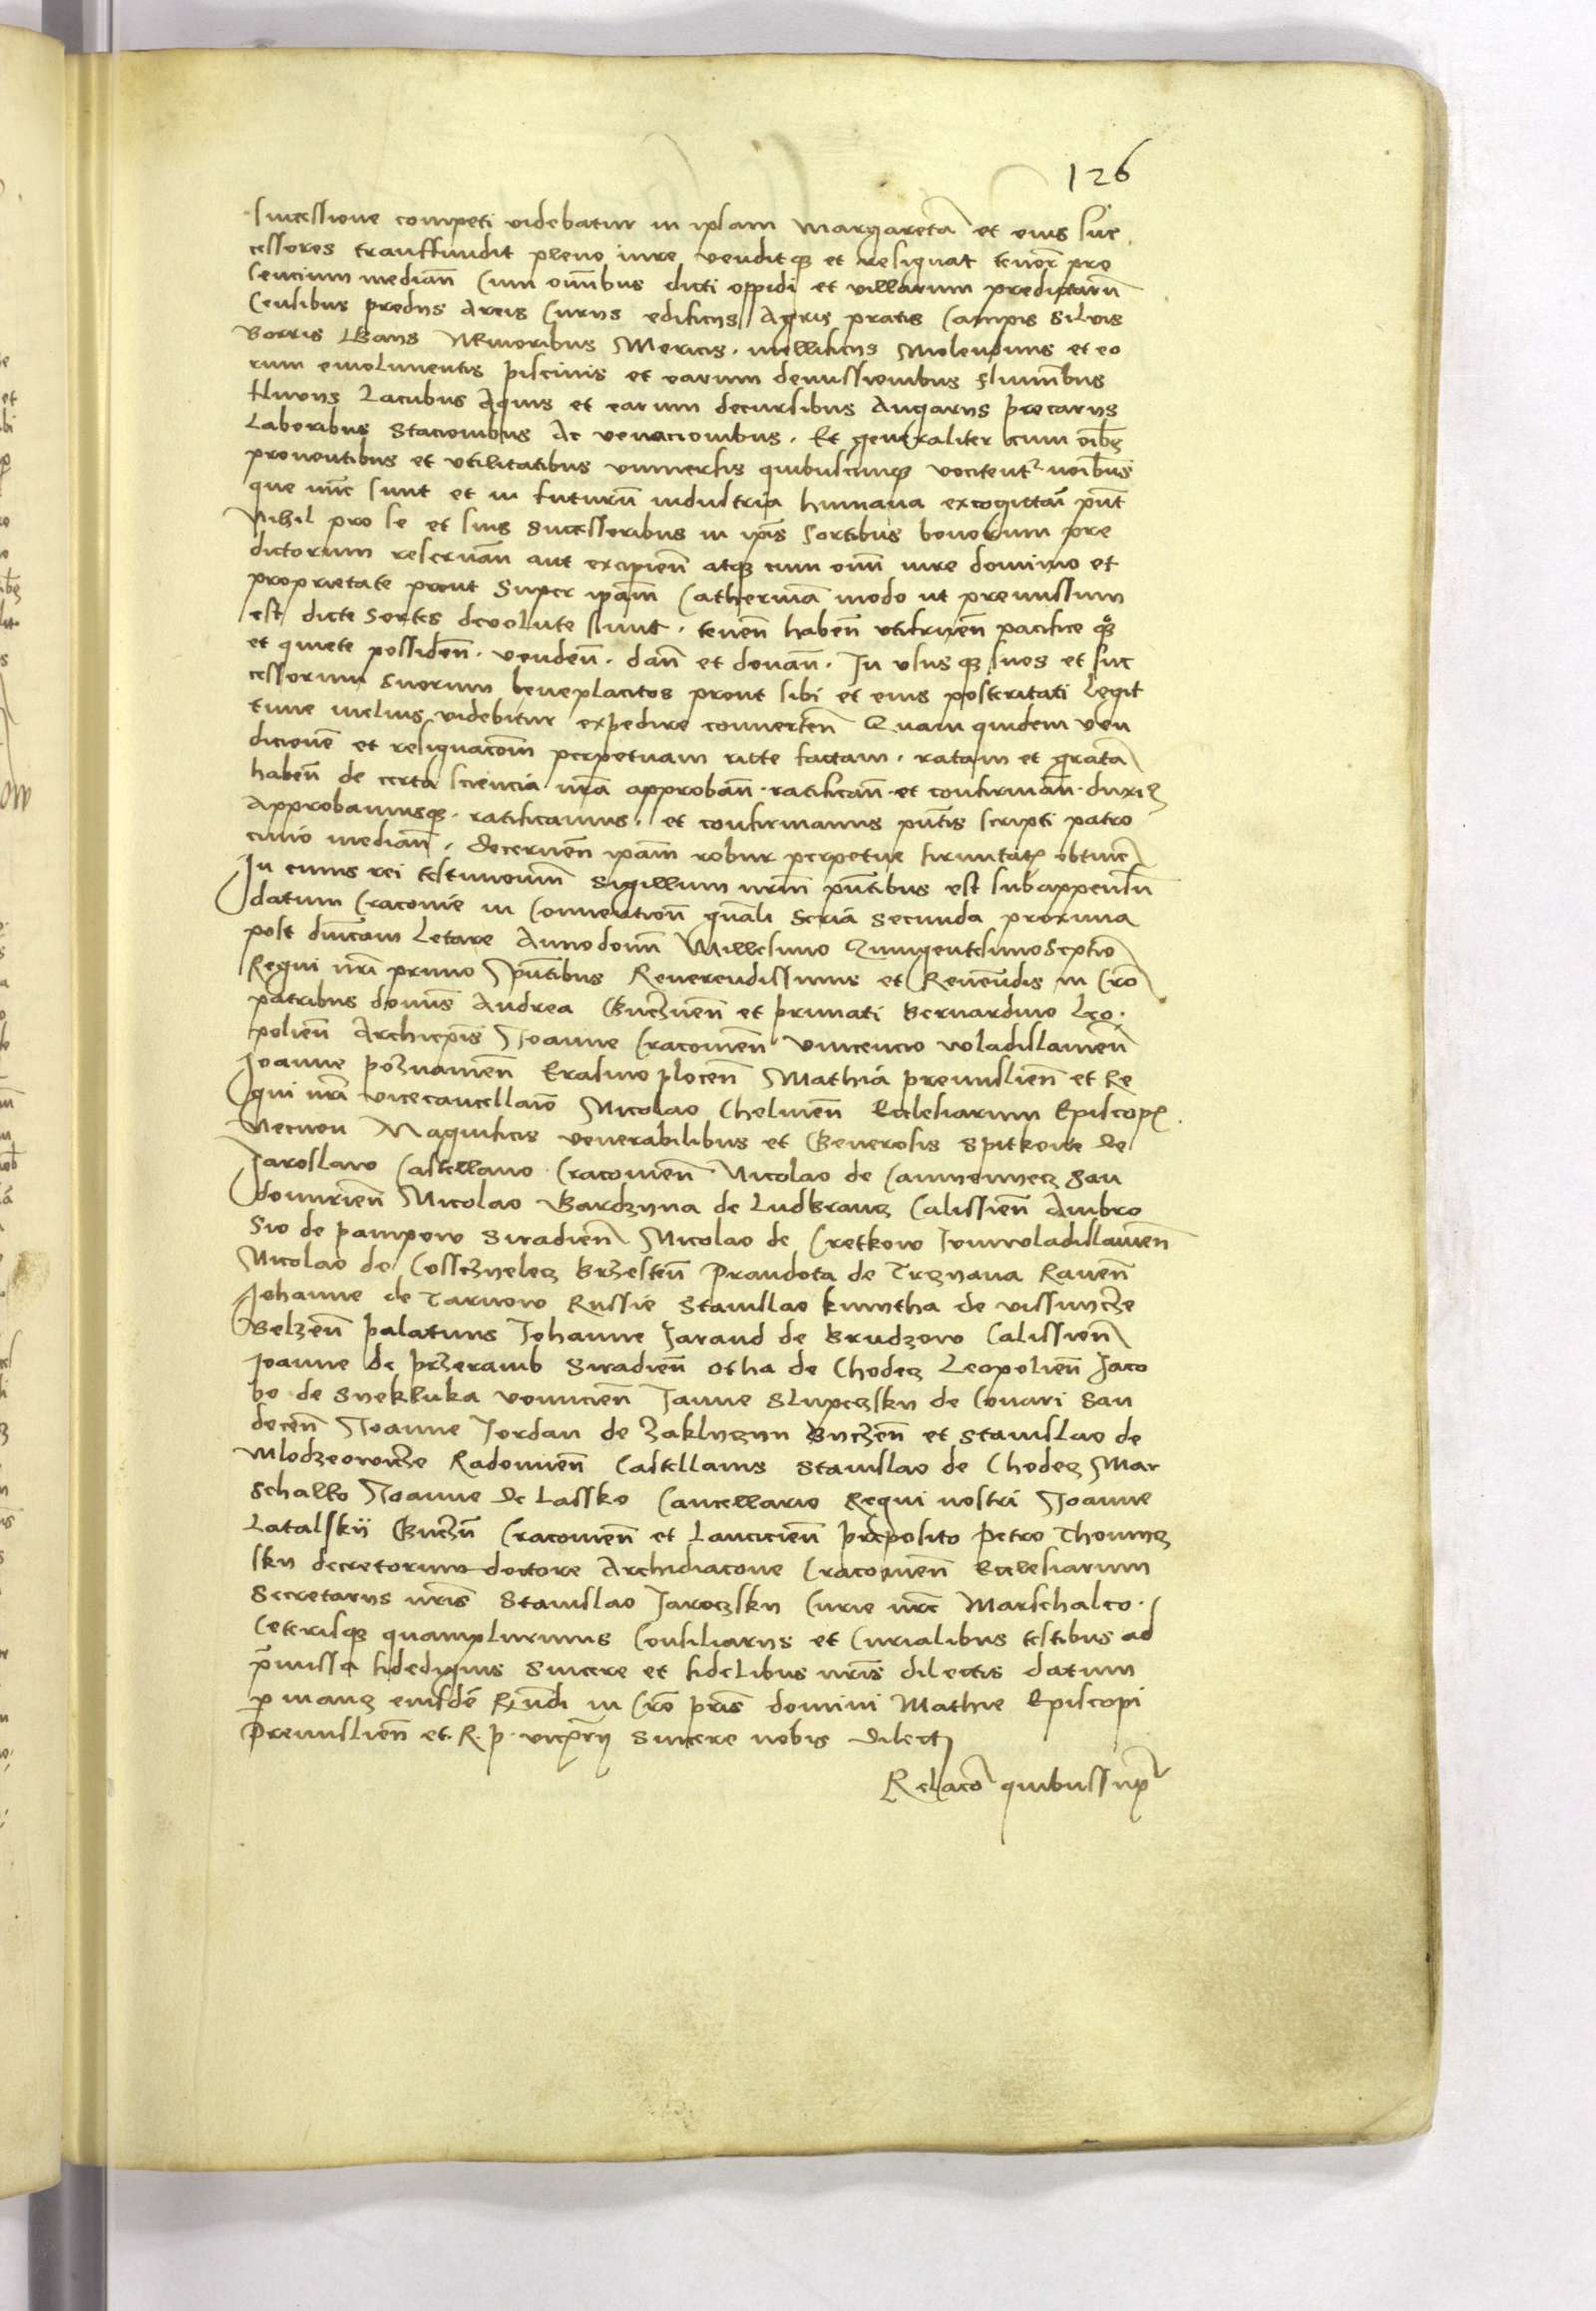 126
successione competi videbatur in ipsam Margaretã et eius suc
cessores transfundit pleno iure venditqз et resignat tenoꝝ pre
sencium mediañ Cum omĩbus dicti oppidi et villarum predictarũ
Censibus predijs Areis Curijs edificijs Agris pratis Campis Siluis
Borris Nemoribus Mericis . mellificijs Molendinis et eo
rum emolimentis piscinis et earum demissionibus fluuiĩbus
fluuijs Lacubus Aquis et earum decursibus Angarijs precarijs
Laboribus Stacionibus Ac venacionibus . Et generaliter cum oĩbз
prouentibus et vtilitatibus vniuersis quibuscunqз vocitent noĩbus
que nũc sunt et in futurũ industria humana excogittari põt
Nihil pro se et suis Successoribus in ip̃is Sortibus bonorum pre
dictorum reseruañ aut excipieñ atqз cum omĩ iure dominio et
proprietate prout Super ip̃am Catherinã modo ut premissum
est dicte Sortes deuolute sunt . teneñ habeñ vtifrueñ pacifice qз
et quiete possideñ . vendeñ . dañ et donañ . In vsus qз suos et suc
cessorum suorum beneplacitos prout sibi et eius posteritati Legit
time melius videbitur expedire conuerteñ Quam quidem ven
dicionẽ et resignacoẽm perpetuam ritte factam . ratam et gratã
habeñ de certa sciencia nr̃a approbañ . ratificañ . et confirmañ . duxiꝫ
Approbamusqз . ratificamus . et confirmamus pñtis scripti patro
cinio mediañ . decerneñ ip̃am robur perpetue firmitatis obtine
In cuius rei testimoniũ Sigillum nr̃m pñtibus est subappensũ
datum Cracouie in Conuentioñ gñali feria secunda proxima
post dñicam Letare Anno domĩ Millesimo Quingentesimo Septĩo
Regni nr̃i primo Pñtibus Reuerendissimis et Reuerẽdis in Cr̃o
patribus domĩs Andrea Gneznẽñ et primati Bernardino Leo.
polieñ Archiepĩs Joanne Cracouieñ Vincencio Wladislauieñ
Joanne poznanieñ Erasmo plocẽñ Mathia premislieñ et Re
gni nr̃i vicecancellario Nicolao Chelmeñ Ecclesiarum Episcopis
Necnon Magnificis venerabilibus et Generosis Spitkone de
Jaroslaw Castellano Cracouieñ Nicolao de Cammenyecz San
domirieñ Nicolao Gardzyna de Ludbrancz Calissieñ Ambro
sio de pampow Siradieñ Nicolao de Cretkow Juniwladislauieñ
Nicolao de Cosscyelecz Brzesteñ Prandota de Trznana Raueñ
Johanne de Tarnow Russie Stanislao kmytha de vissnycze
Belzeñ palatinis Johanne Jarand de Brudzow Calissieñ
Joanne de przeramb Siradieñ Otha de Chodecz Leopolieñ Jaco
bo de Syekluka voyniceñ Janne Slupeczsky de Conari San
deceñ Joanne Jordan de zaklyczyn Byeczeñ et Stanislao de
Mlodzeowicze Radomieñ Castellanis Stanislao de Chodecz Mar
schalko Joanne de Lassko Cancellario Regni nostri Joanne
Latalskij Gneznẽ Cracouieñ et Lancicieñ preposito Petro Thomicz
sky decretorum doctore Archidiacono Cracouieñ Ecclesiarum
Secretarijs nr̃is Stanislao Jaroczsky Curie nr̃e Marschalco .
Ceterisqз quamplurimis Consiliarijs et Curialibus testibus ad
p̃missa fidedignis Sincere et fidelibus nr̃is dilectis datum
p manus eiusdẽ Rñdi in Cr̃o pr̃is domini Mathie Episcopi
Premislieñ et . R . p . vicecr̃ij Sincere nobis dilecti
Relacõ quibus supra